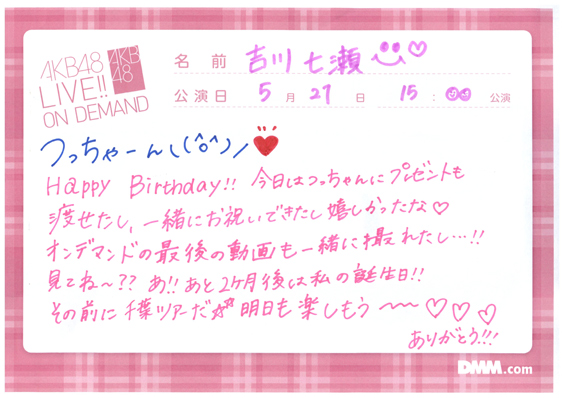 AKB48
LIVE!!
ON DEMAND
AKB
48
名前 吉川七瀬
公演日 5月27日 15:00公演
つっちゃーん\(^o^)/
Happy Birthday!! 今日はつっちゃんにプレゼントも
渡せたし、一緒にお祝いできたし嬉しかったな♡
オンデマンドの最後の動画も一緒に撮れたし…!!
見てね〜?? あ!! あと2ヶ月後は私の誕生日!!
その前に千葉ツアーだ 明日も楽しもう〜〜♡♡♡
ありがとう!!!
DMM.com